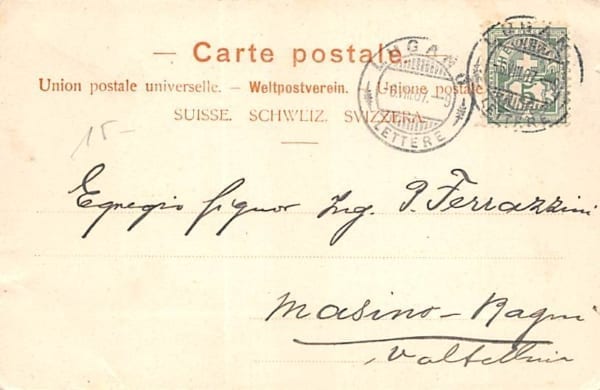 — Carte postale.
Union postale universelle. — Weltpostverein. — Unione postale
SUISSE. SCHWEIZ. SVIZZERA.
LUGANO
6.VIII.07. - 9
LETTERE
LUGANO
VIII.07
LETTERE
15-
Egregio Signor Ing. P. Ferrazzini
Masino-Bagni
Valtellina